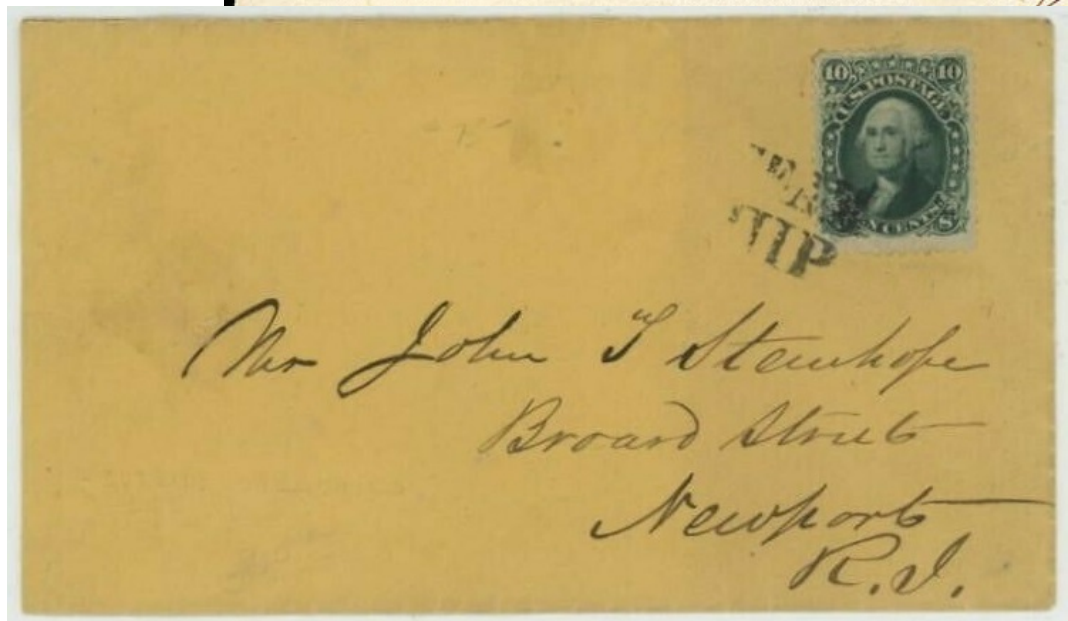 10 10
U.S. POSTAGE
N CENTS
IIP
Mr John T Stanhope
Broard Street
Newport
R.I.